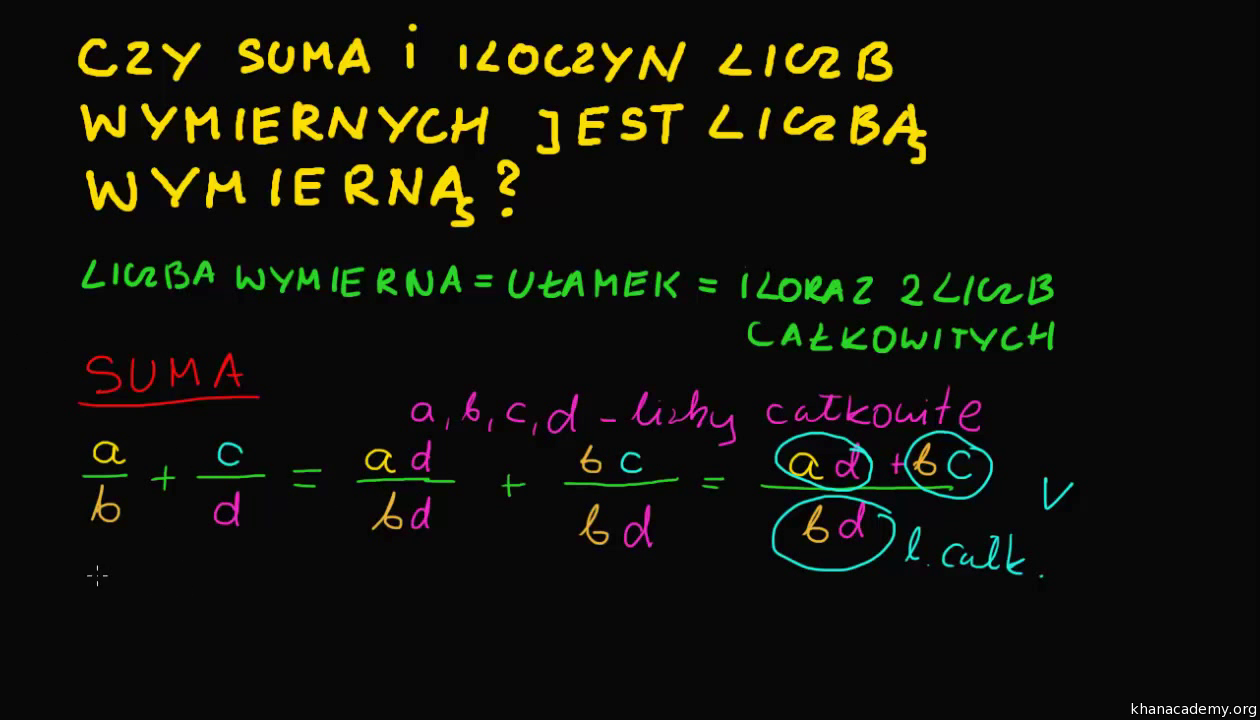 CZY SUMA i ILOCZYN LICZB
WYMIERNYCH JEST LICZBĄ
WYMIERNĄ?
LICZBA WYMIERNA = UŁAMEK = ILORAZ 2 LICZB
CAŁKOWITYCH
SUMA
a, b, c, d - liczby całkowite
a/b + c/d = ad/bd + bc/bd = ad + bc/bd V
l. całk.
khanacademy.org